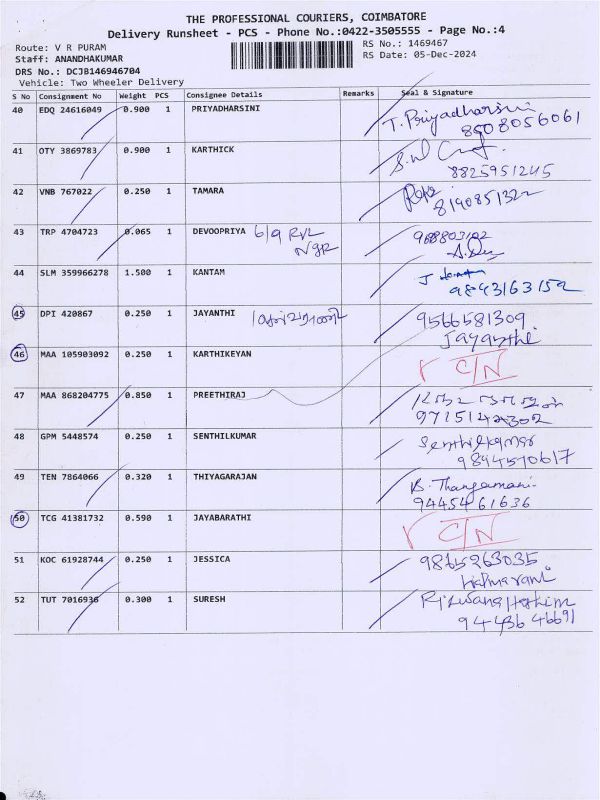 THE PROFESSIONAL COURIERS, COIMBATORE
Delivery Runsheet - PCS - Phone No.:0422-3505555 - Page No.:4
Route: V R PURAM
RS No.: 1469467
Staff: ANANDHAKUMAR
RS Date: 05-Dec-2024
DRS No.: DCJB146946704
Vehicle: Two Wheeler Delivery
S No Consignment No Weight PCS Consignee Details Remarks Seal & Signature
40 EDQ 24616049 0.900 1 PRIYADHARSINI T. Priyadharsini
8508056061
41 OTY 3869783 0.900 1 KARTHICK
8825951245
42 VNB 767022 0.250 1 TAMARA
8190851322
43 TRP 4704723 0.065 1 DEVOOPRIYA
44 SLM 359966278 1.500 1 KANTAM
9843163152
45 DPI 420867 0.250 1 JAYANTHI 9566581309
Jayanthi
46 MAA 105903092 0.250 1 KARTHIKEYAN C/N
47 MAA 868204775 0.850 1 PREETHIRAJ
48 GPM 5448574 0.250 1 SENTHILKUMAR Senthilkumar
9894570617
49 TEN 7864066 0.320 1 THIYAGARAJAN B. Thangamani
9445461636
50 TCG 41381732 0.590 1 JAYABARATHI C/N
51 KOC 61928744 0.250 1 JESSICA 9865263035
52 TUT 7016936 0.300 1 SURESH
9443646691